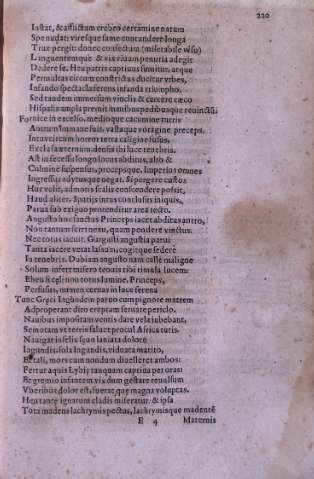 220
Instat, & afflictam crebro certamine natum
Spe nudat: viresque fame contundere longa
Trux pergit: donec confectum (miserabile visu)
Linquentemque & vix viuam penuria adegit
Dedere se. Heu patris captiuus sumitur, atque
Permultas circum constrictus ducitur vrbes,
Infando spectacla ferens infanda triumpho.
Sed tandem immensum vinclis & carcere cæco
Hispalis ampla premit manibus pedibusque reuinctis
Fornice in excelso, medioque cacumine turris
Antrum immane fuit, vastaque voragine præceps.
Intus circum horror terra caligine fusus.
Exclusa æternum densis ibi luce tenebris.
Ast in secessu longo locus abditus, alto &
Culmine suspensus, præcepsque. Imperio omnes
Ingressu adytusque negat. Si pergere castos
Huc volit, admotis scalis conscendere possit,
Haud aliter. Spatijs intus conclusis iniquis,
Parua sub exiguo protenditur area tecto.
Angusto hinc sanctus Princeps iacet abditus antro,
Non tantum ferri nexu, quam pondere vinctus.
Nec totus iacuit. Gargusti angustia parui
Tanta iacere vetat lassum, cogitque sedere
In tenebris. Dubiam angusto nam calle maligne
Solum infert misero tenuis tibi rimula lucem:
Eheu si cæli non totus lumine, Princeps,
Perfusus, mánes ceruatis luce serena
Tunc Greci Ingúndem paruo cum pignore matrem
Adproperant diro ereptam seruare periclo.
Nauibus impositam ventis dare vela iubebant,
Semotam vt terris saluet procul Africa tutis.
Nauigat infelix spun laniata dolore
Ingundis, sola Ingundis, viduata marito,
Et tali, mors cum nondum diuelleret ambos:
Fertur aquis Lybię tanquam captiua per oras:
Be gremio infantem vix dum gestare reuulsum
Vberibus, dolor est, fuerat quę magna voluptas.
Heu tantę ignarum cladis miseratur. & ipsa
Tota madens lachrymis pectus, lachrymisque madentē
E 4 Maternis